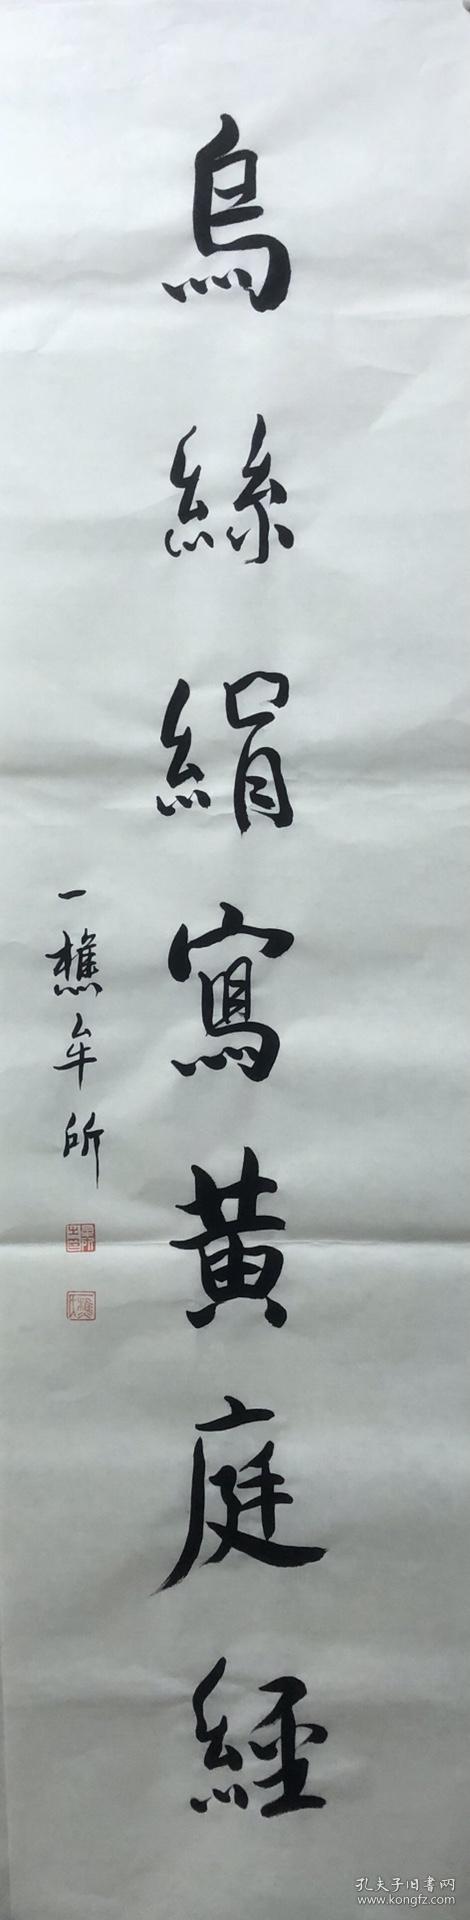 烏絲絹寫黃庭經
一樵牟所
孔夫子旧書网
www.kongfz.com